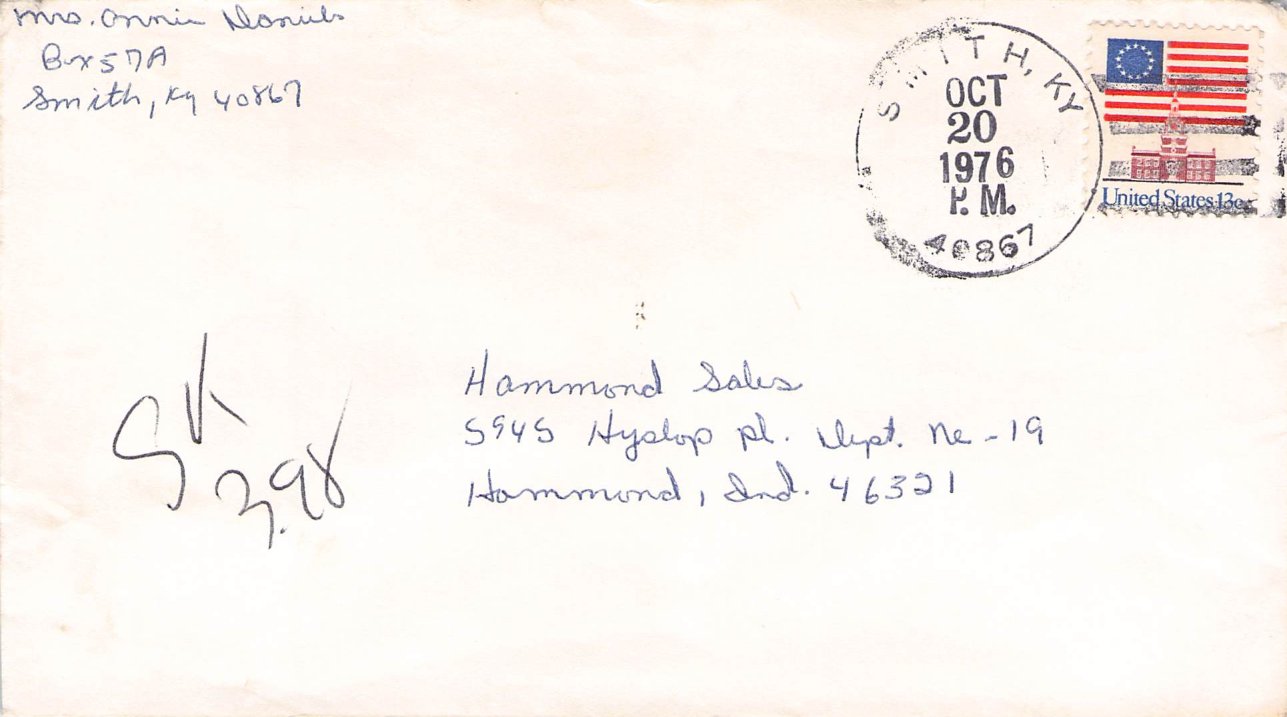 Mrs. Annie Daniels
Box 57A
Smith, Ky 40867
SMITH, KY
OCT
20
1976
P.M.
40867
United States 13c
Hammond Sales
5945 Hyslop pl. Dept. Ne-19
Hammond, Ind. 46321
SK
3.98